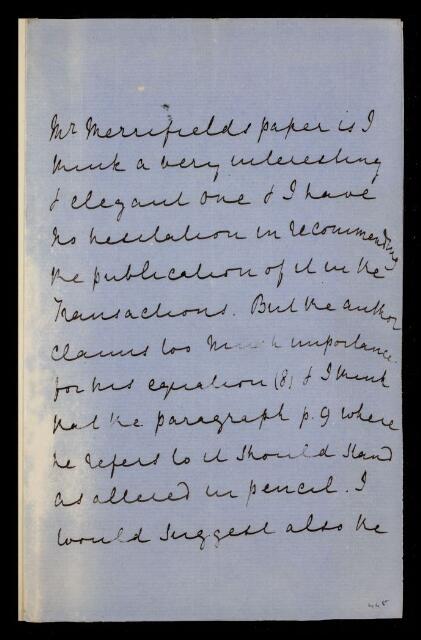 Mr Merrifields paper is I
think a very interesting
& elegant one & I have
no hesitation in recommending
the publication of it in the
Transactions. But the author
claims too much importance
for his equation (8) & I think
that the paragraph p. 9 where
he refers to it should stand
as altered in pencil. I
would suggest also the
445